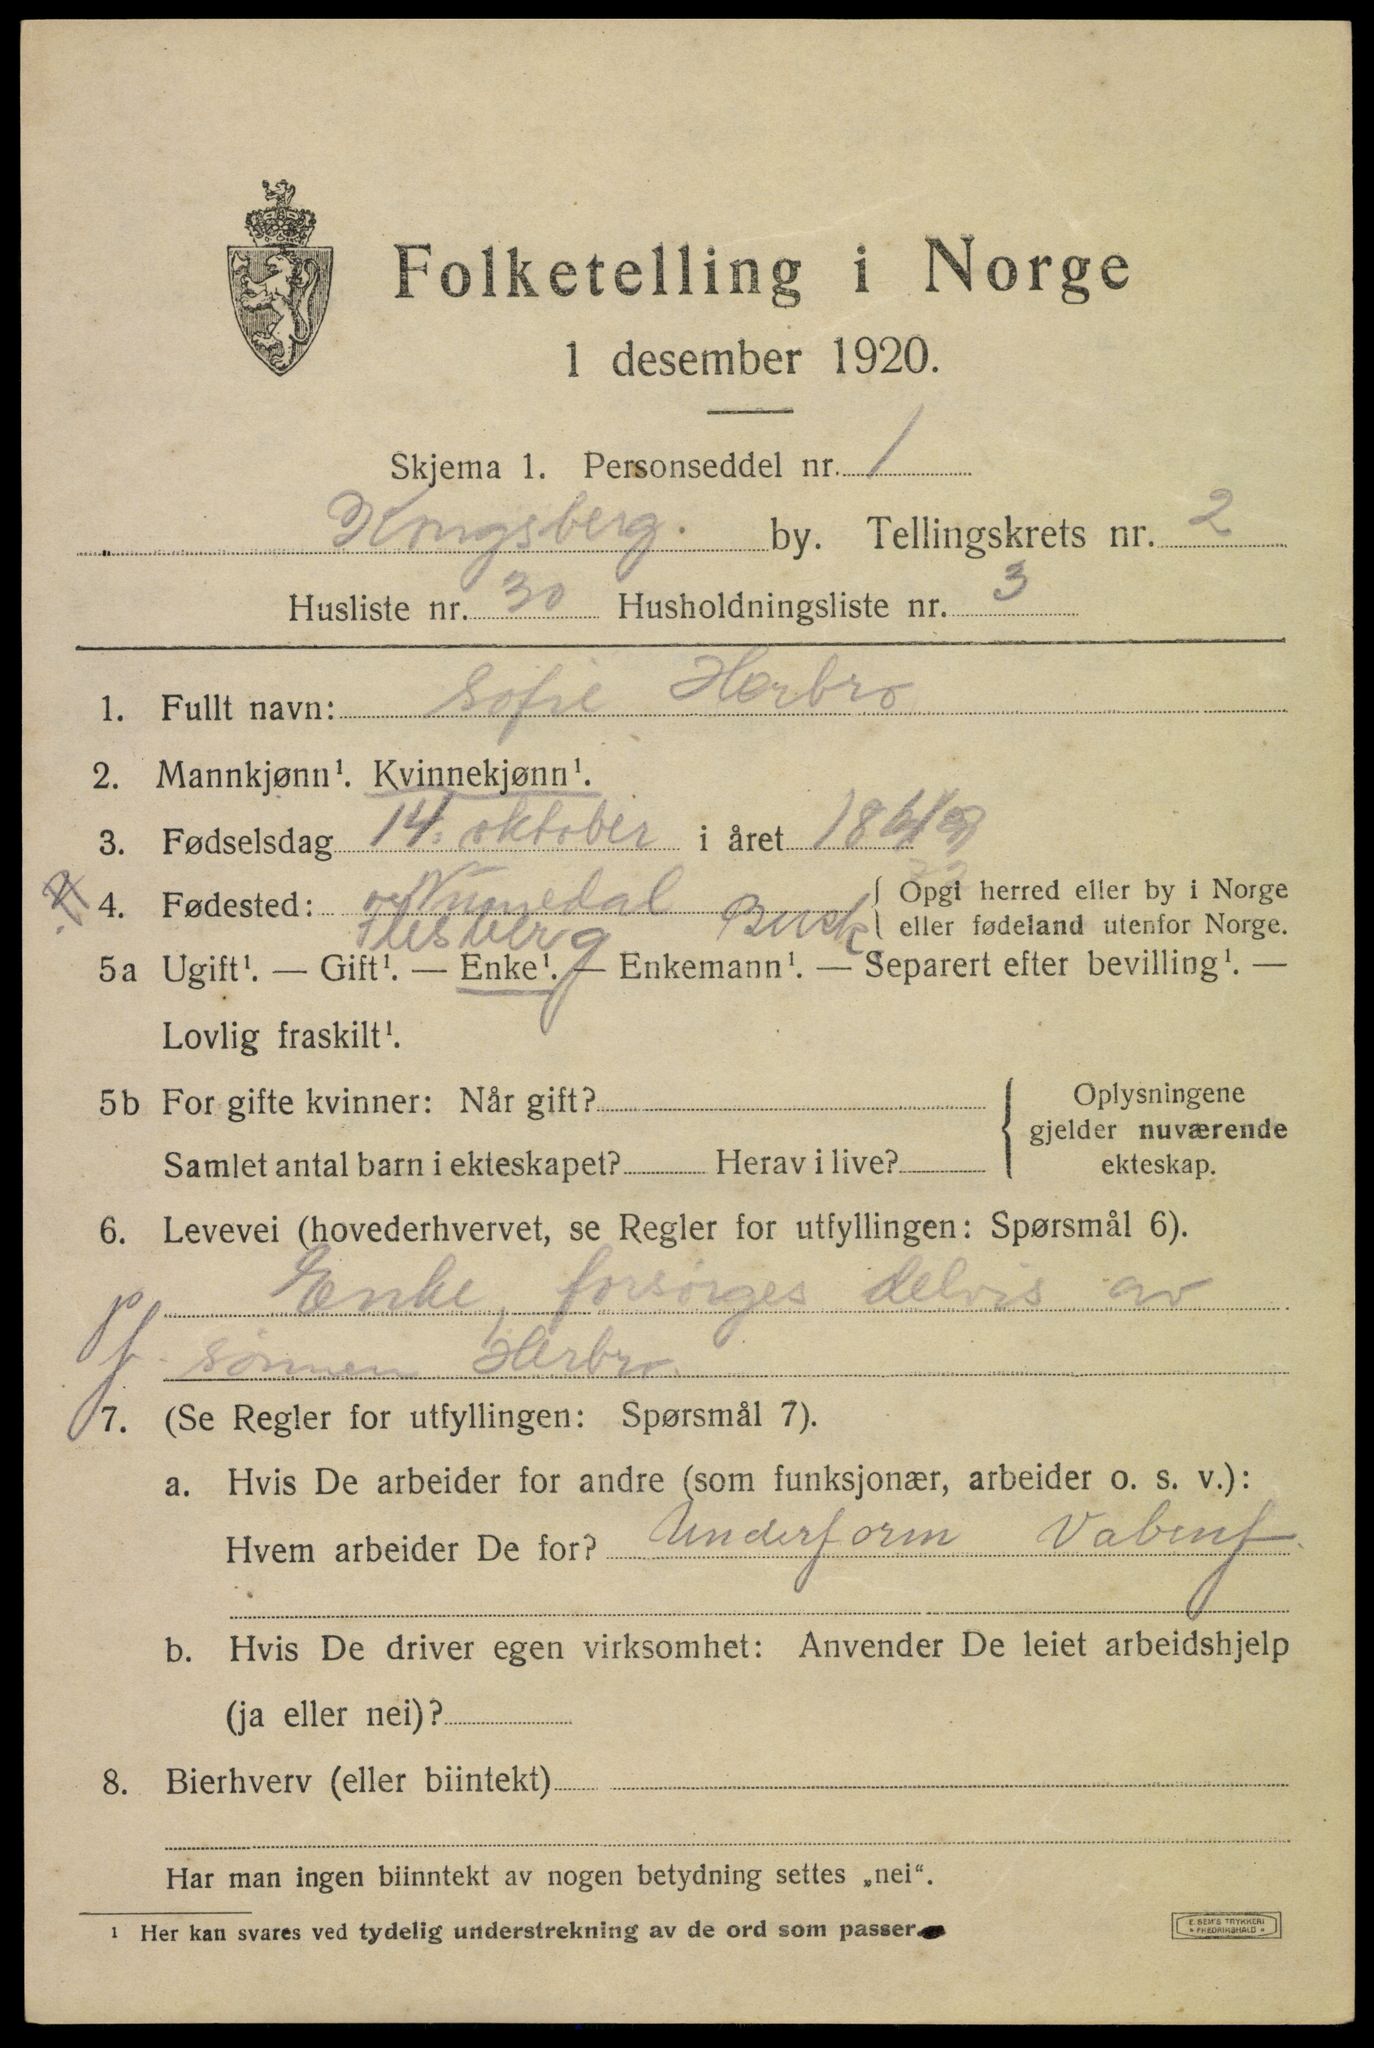 Folketelling i Norge
1 desember 1920.
Skjema 1. Personseddel nr. 1
Kongsberg. by. Tellingskrets nr. 2
Husliste nr. 30 Husholdningsliste nr. 3
1. Fullt navn: Sofie Herbro
2. Mannkjønn¹. Kvinnekjønn¹.
3. Fødselsdag 14. oktober i året
4. Fødested: Numedal Busk { Opgi herred eller by i Norge
Flesberg eller fødeland utenfor Norge.
5a Ugift¹. — Gift¹. — Enke¹. — Enkemann¹. — Separert efter bevilling¹. —
Lovlig fraskilt¹.
5b For gifte kvinner: Når gift? { Oplysningene
gjelder nuværende
Samlet antal barn i ekteskapet? Herav i live? ekteskap.
6. Levevei (hovederhvervet, se Regler for utfyllingen: Spørsmål 6).
Enke, forsørges delvis av
sønnen Herbro
7. (Se Regler for utfyllingen: Spørsmål 7).
a. Hvis De arbeider for andre (som funksjonær, arbeider o. s. v.):
Hvem arbeider De for? Underform Vabenf.
b. Hvis De driver egen virksomhet: Anvender De leiet arbeidshjelp
(ja eller nei)?
8. Bierhverv (eller biintekt)
Har man ingen biinntekt av nogen betydning settes „nei“.
¹ Her kan svares ved tydelig understrekning av de ord som passer.
E. SEM'S TRYKKERI
» FREDRIKSHALD «